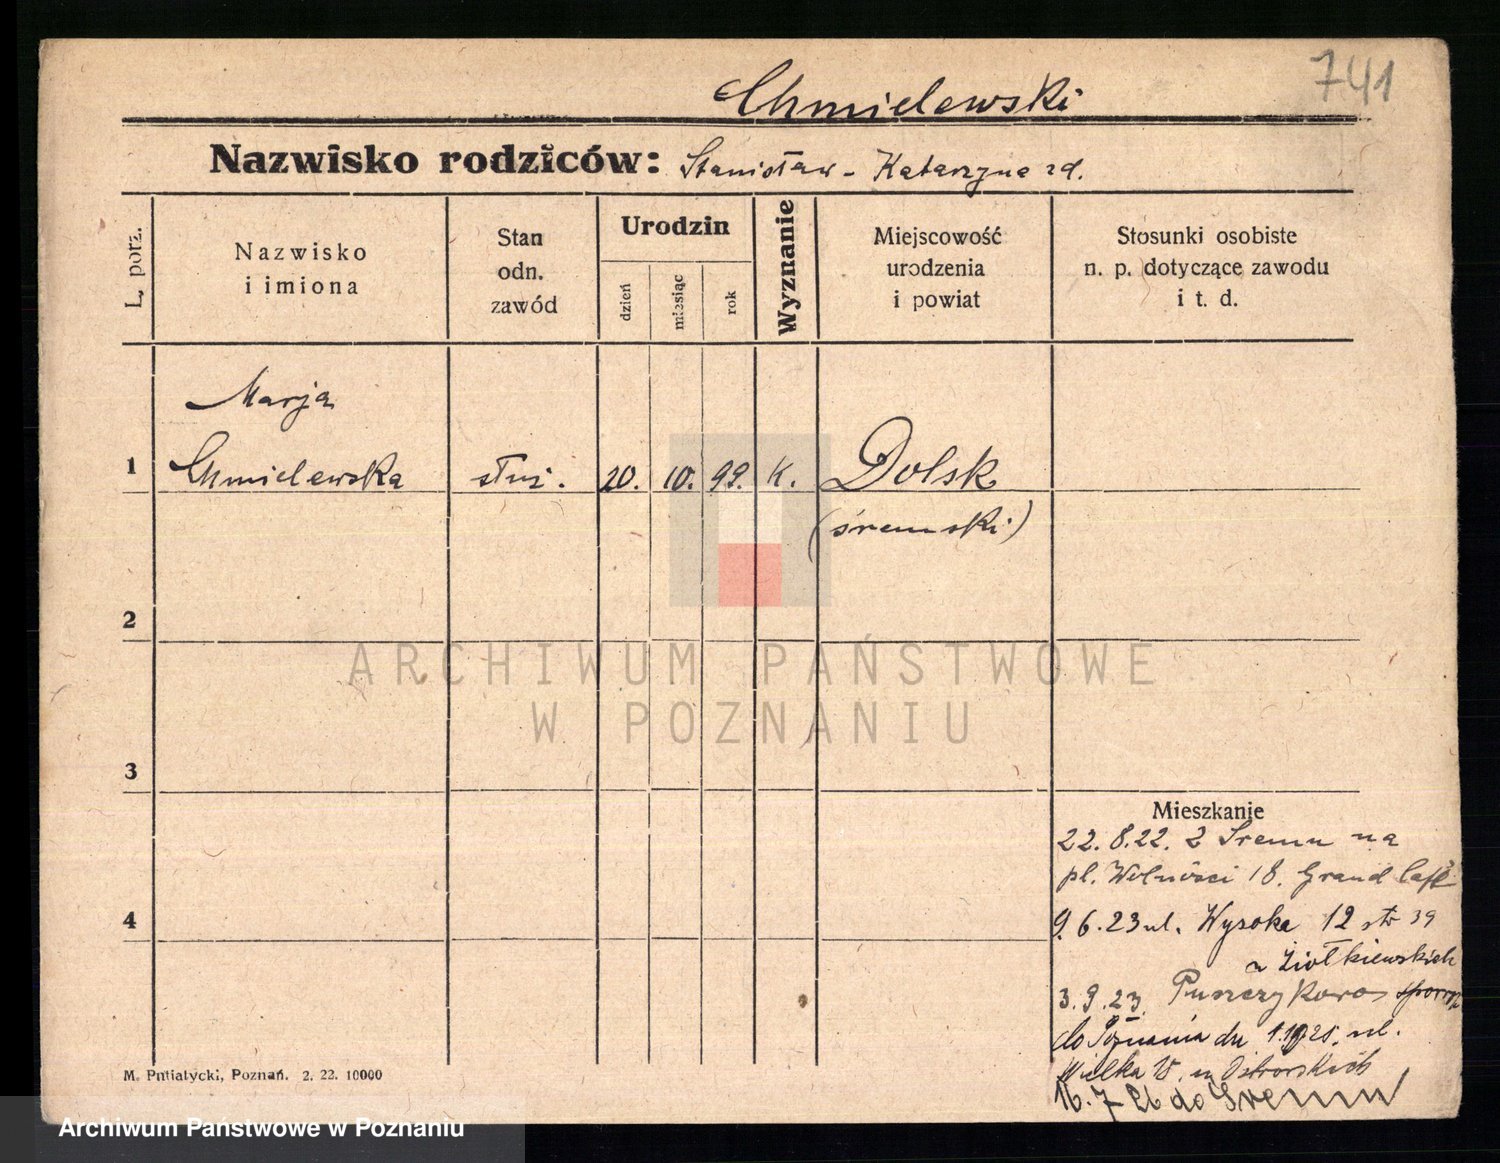 741
Chmielewski
Nazwisko rodziców: Stanisław - Katarzyna zd.
L. porz.
Nazwisko
i imiona
Stan
odn.
zawód
Urodzin
dzień
miesiąc
rok
Wyznanie
Miejscowość
urodzenia
i powiat
Stosunki osobiste
n. p. dotyczące zawodu
i t. d.
Marja
1 Chmielewska służ. 20. 10. 99. K. Dolsk
(śremski)
2
ARCHIWUM PAŃSTWOWE
W POZNANIU
3
Mieszkanie
22. 8.22. z Śremu na
pl. Wolności 18. Grand Café
4
9. 6.23 ul. Wysoka 12 str 39
u Ziołkiewskich
3.9.23. Puszczykowo
do Poznania du ul.
Wielka 18. u
16. 7 do Śremu
M. Putiatycki, Poznań. 2. 22. 10000
Archiwum Państwowe w Poznaniu